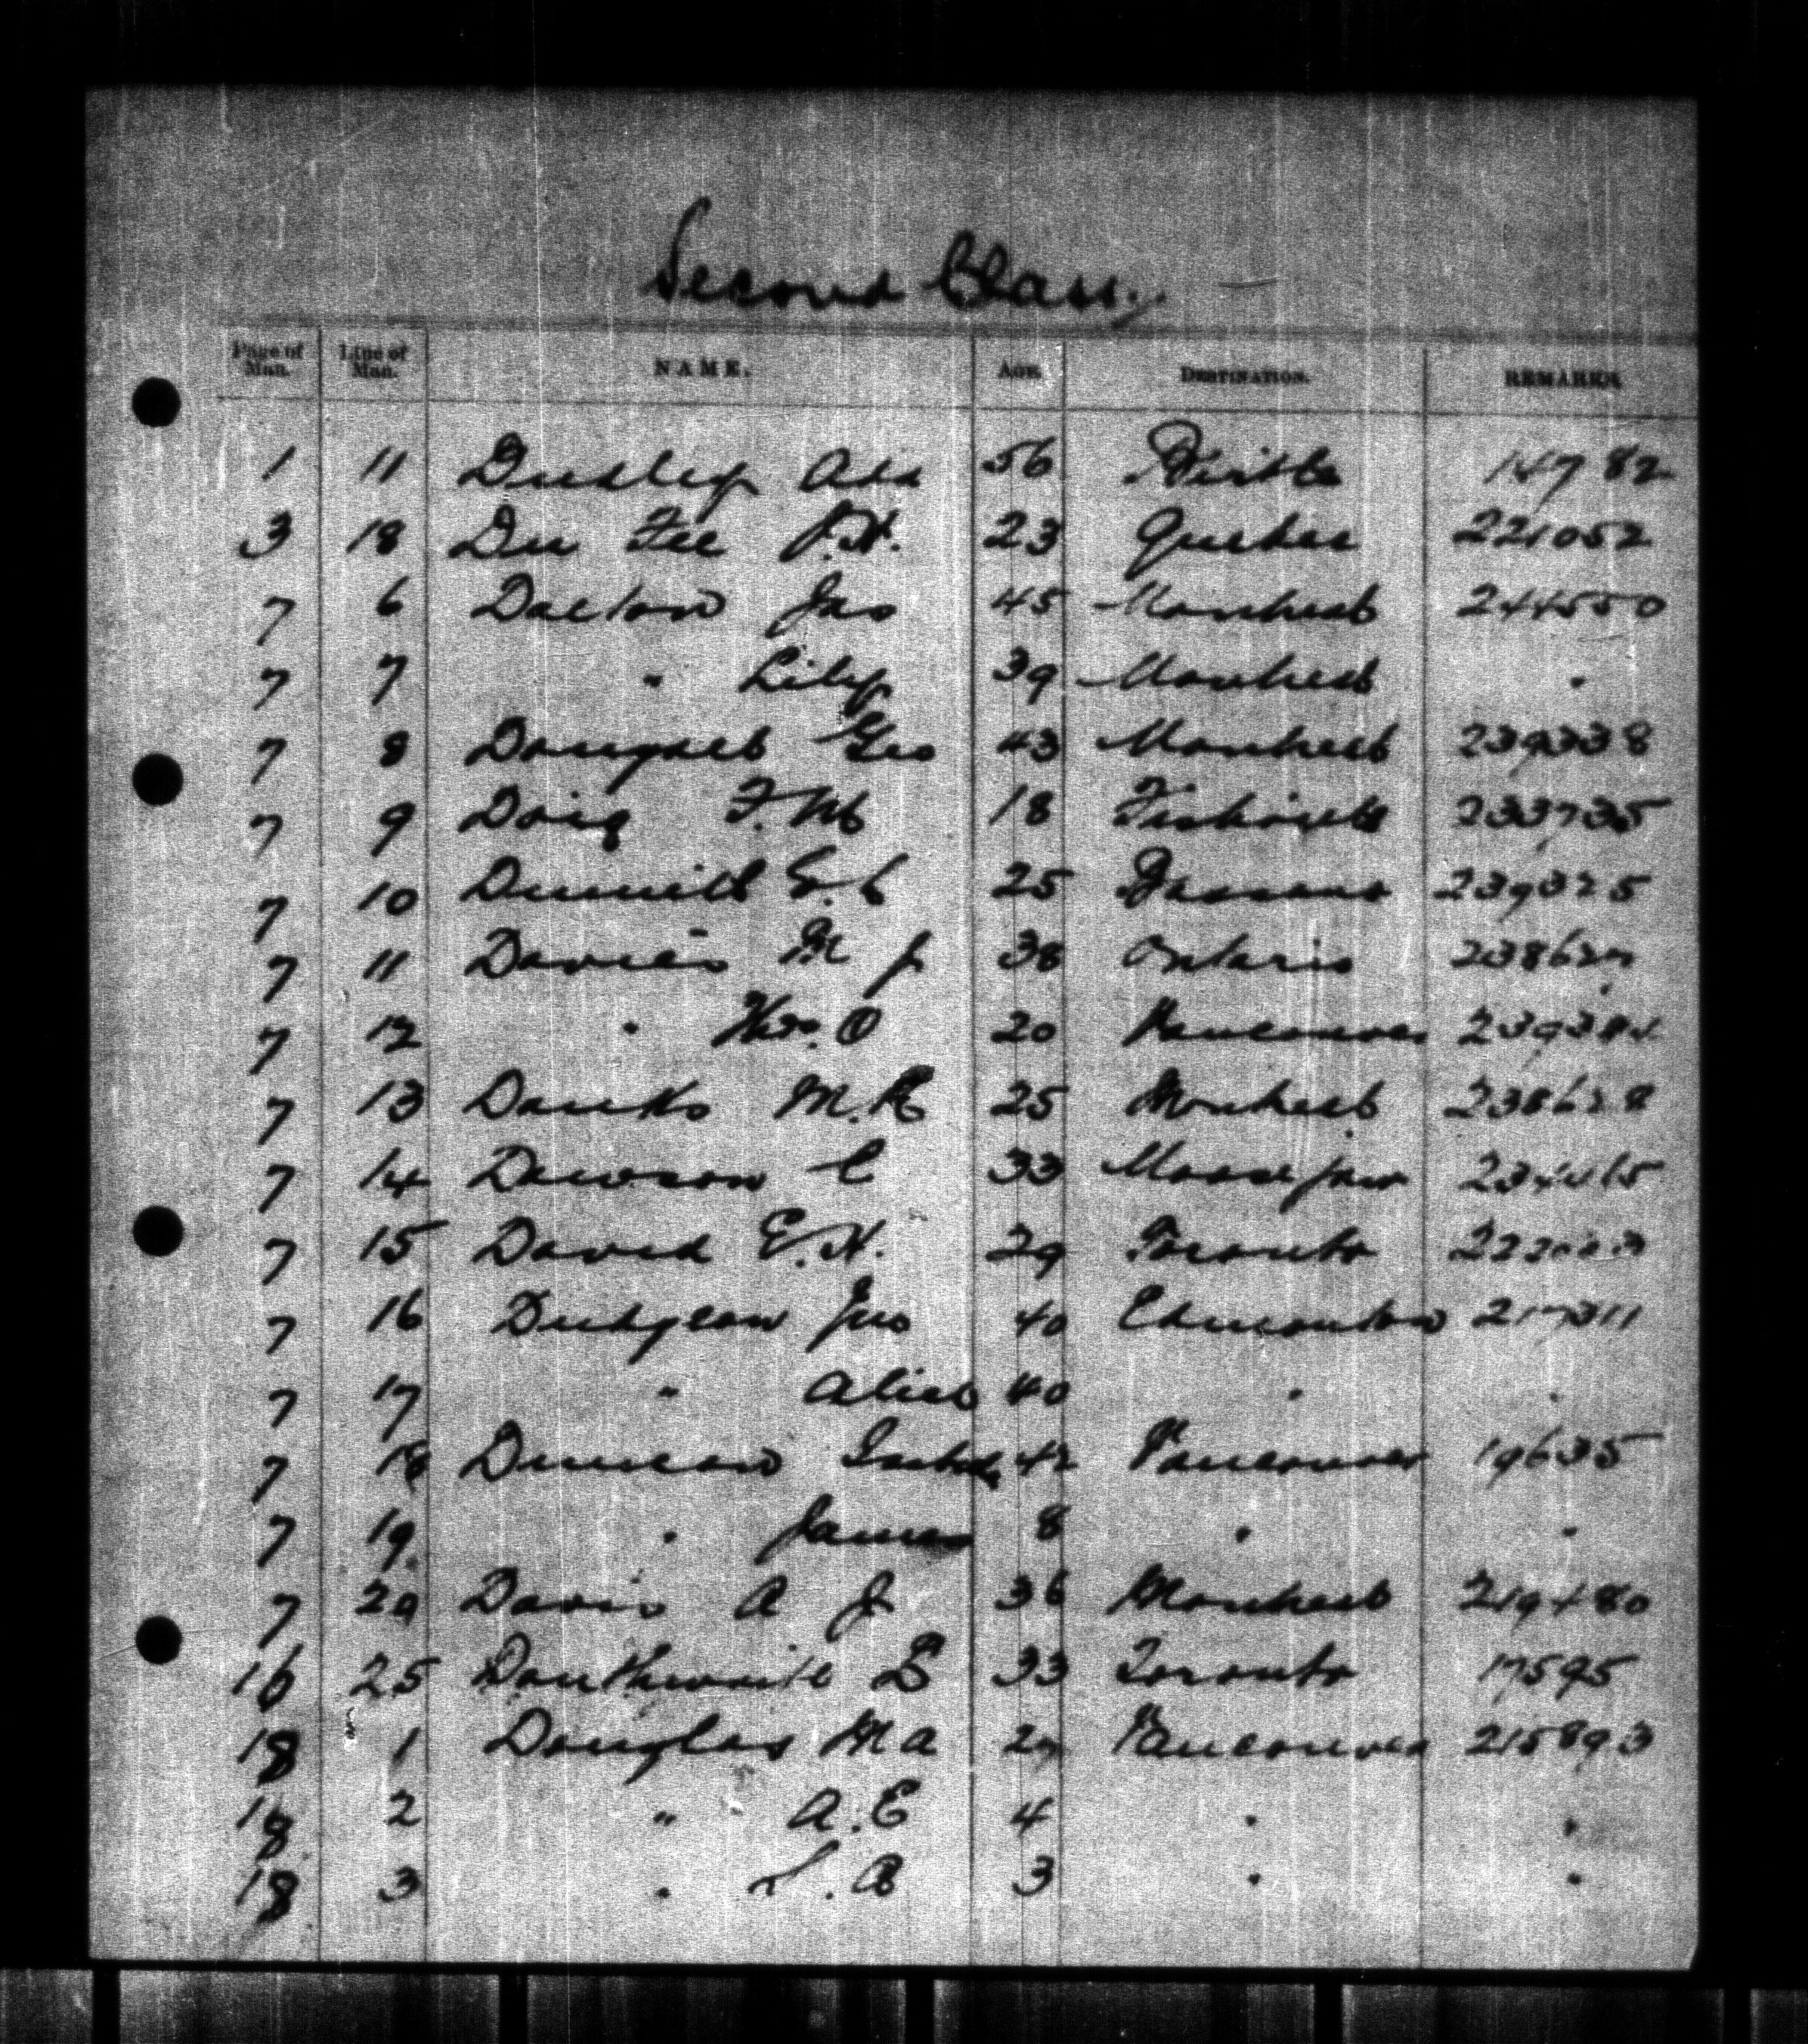 Second Class.
Page of Man. Line of Man. NAME. AGE. DESTINATION. REMARKS.
1 11 Dudley Ada 56 Birtle 14782
3 18 Du Fee J.H. 23 Quebec 221052
7 6 Dalton Jas 45 Montreal 244550
7 7 " Lily 39 Montreal "
7 8 Geo 43 Montreal 239338
7 9 Doig F.M 18 233735
7 10 25 Bassano 239325
7 11 Davies M J 38 Ontario 238627
7 12 " Wm. O 20 Vancouver
7 13 Danks M.R 25 Montreal 238628
7 14 Dawson C 33 Moosejaw
7 15 David E.H. 29 Toronto
7 16 Dudgeon Jno 40 Edmonton 217311
7 17 " Alice 40 " "
7 18 Duncan 42 Vancouver 19635
7 19 " James 8 " "
7 20 Davis A J 36 Montreal 219480
16 25 Douthwaite B 33 Toronto 17595
18 1 Douglas M A 27 Vancouver 215893
18 2 " A.E 4 " "
18 3 " 3 " "